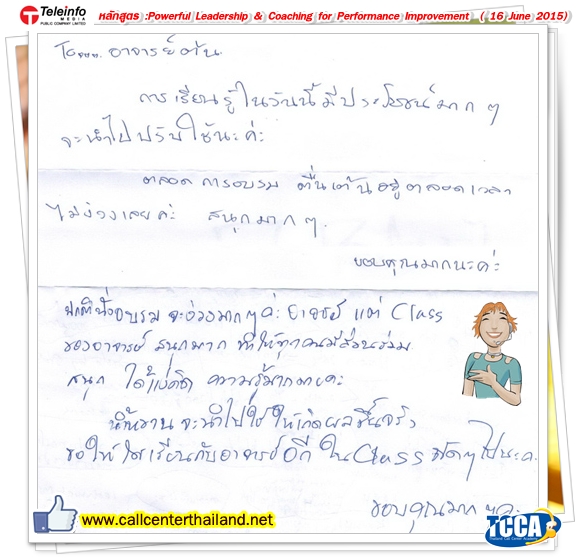 Teleinfo
MEDIA
PUBLIC COMPANY LIMITED
หลักสูตร :Powerful Leadership & Coaching for Performance Improvement ( 16 June 2015)
To..... อาจารย์ต้น
การเรียนรู้ในวันนี้มีประโยชน์มาก ๆ
จะนำไปปรับใช้นะค่ะ
ตลอดการอบรม ตื่นเต้นอยู่ตลอดเวลา
ไม่ง่วงเลยค่ะ สนุกมาก ๆ
ขอบคุณมากนะค่ะ
ปกตินั่งอบรม จะง่วงมากๆค่ะ อาจารย์ แต่ Class
ของอาจารย์ สนุกมาก ทำให้ทุกคนมีส่วนร่วม
สนุก ได้แง่คิด ความรู้มากค่ะ
จะนำไปใช้ให้เกิดผลขึ้นจริง
ขอให้ได้เรียนกับอาจารย์อีก ใน Class ต่อๆไปนะค่ะ
ขอบคุณมาก ๆค่ะ
www.callcenterthailand.net
TCCA
Thailand Call Center Academy